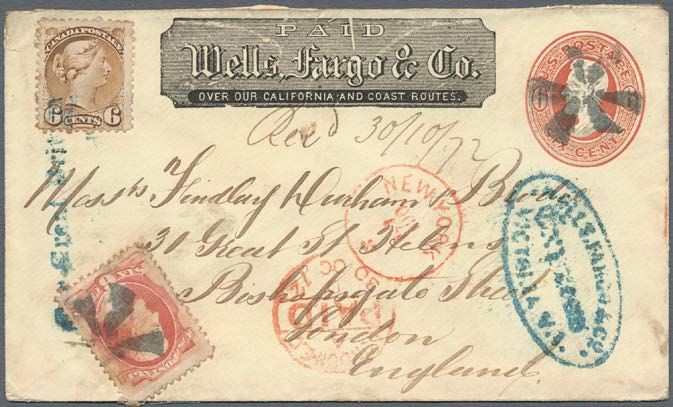 PAID
Wells, Fargo & Co.
OVER OUR CALIFORNIA AND COAST ROUTES.
CANADA POSTAGE
6 CENTS 6
U.S. POSTAGE
6 6
SIX CENTS
Rec'd 30/10/72
Mess'rs Findlay Durham & Brodie
31 Great St Helens
Bishopsgate Street
London
England
NEW YORK
PAID
WELLS, FARGO & CO.
VICTORIA V.I.